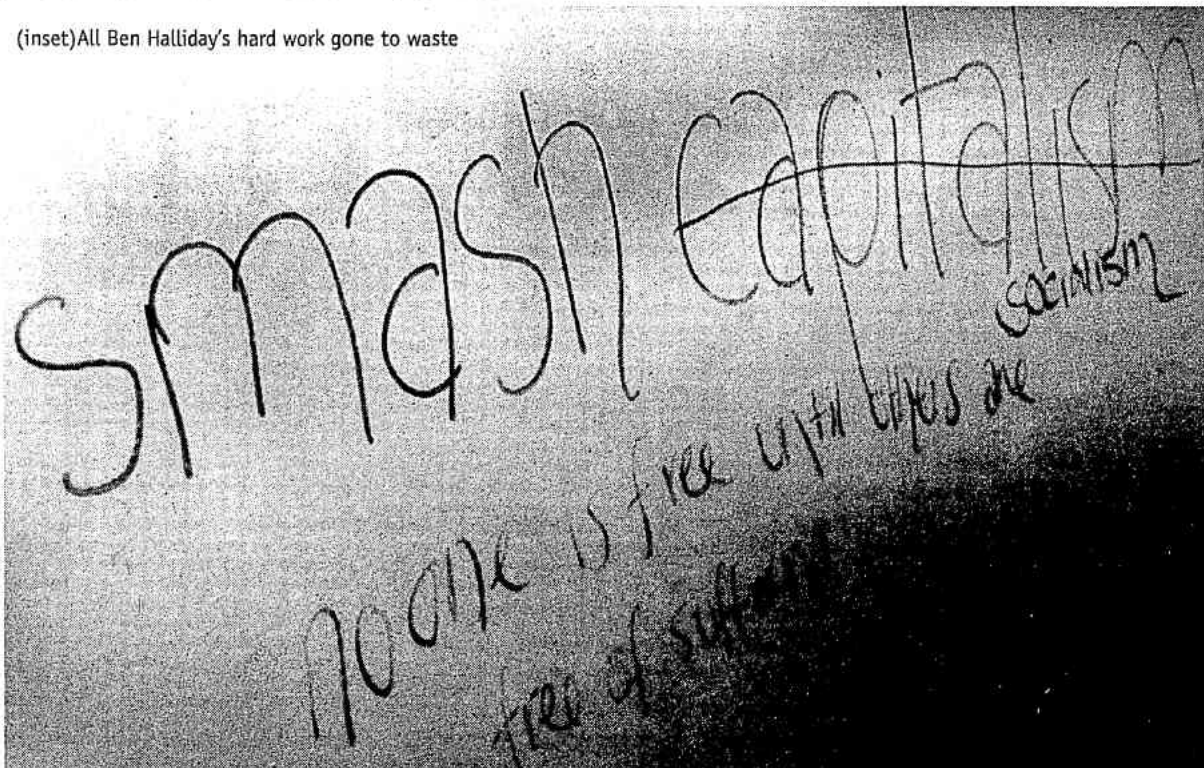 (inset)All Ben Halliday's hard work gone to waste
smash capitalism
socialism
no one is free until others are
free of